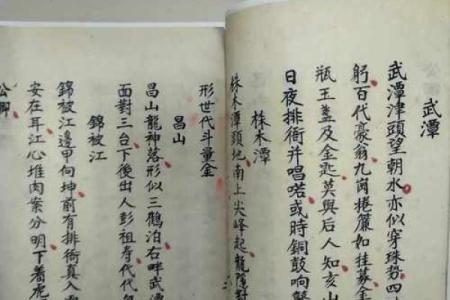 武潭
武潭津頭望朝水亦似穿珠势四
躬百代豪翁九崗捲簾如挂蓡金
瓶玉盏及金匙莫與后人知亥山
日夜排衙并唱喏或時銅鼓响聲
株木潭
株木潭頭地南上尖峰起龍隱對
形世代斗量金
昌山
昌山龍神落形似三鶴泊右畔武潭
面對三台下後出人彭祖寿代代
錦被江
錦被江邊甲向坤前有排衙真入
安在耳江心堆肉案分明下着虎
公卿